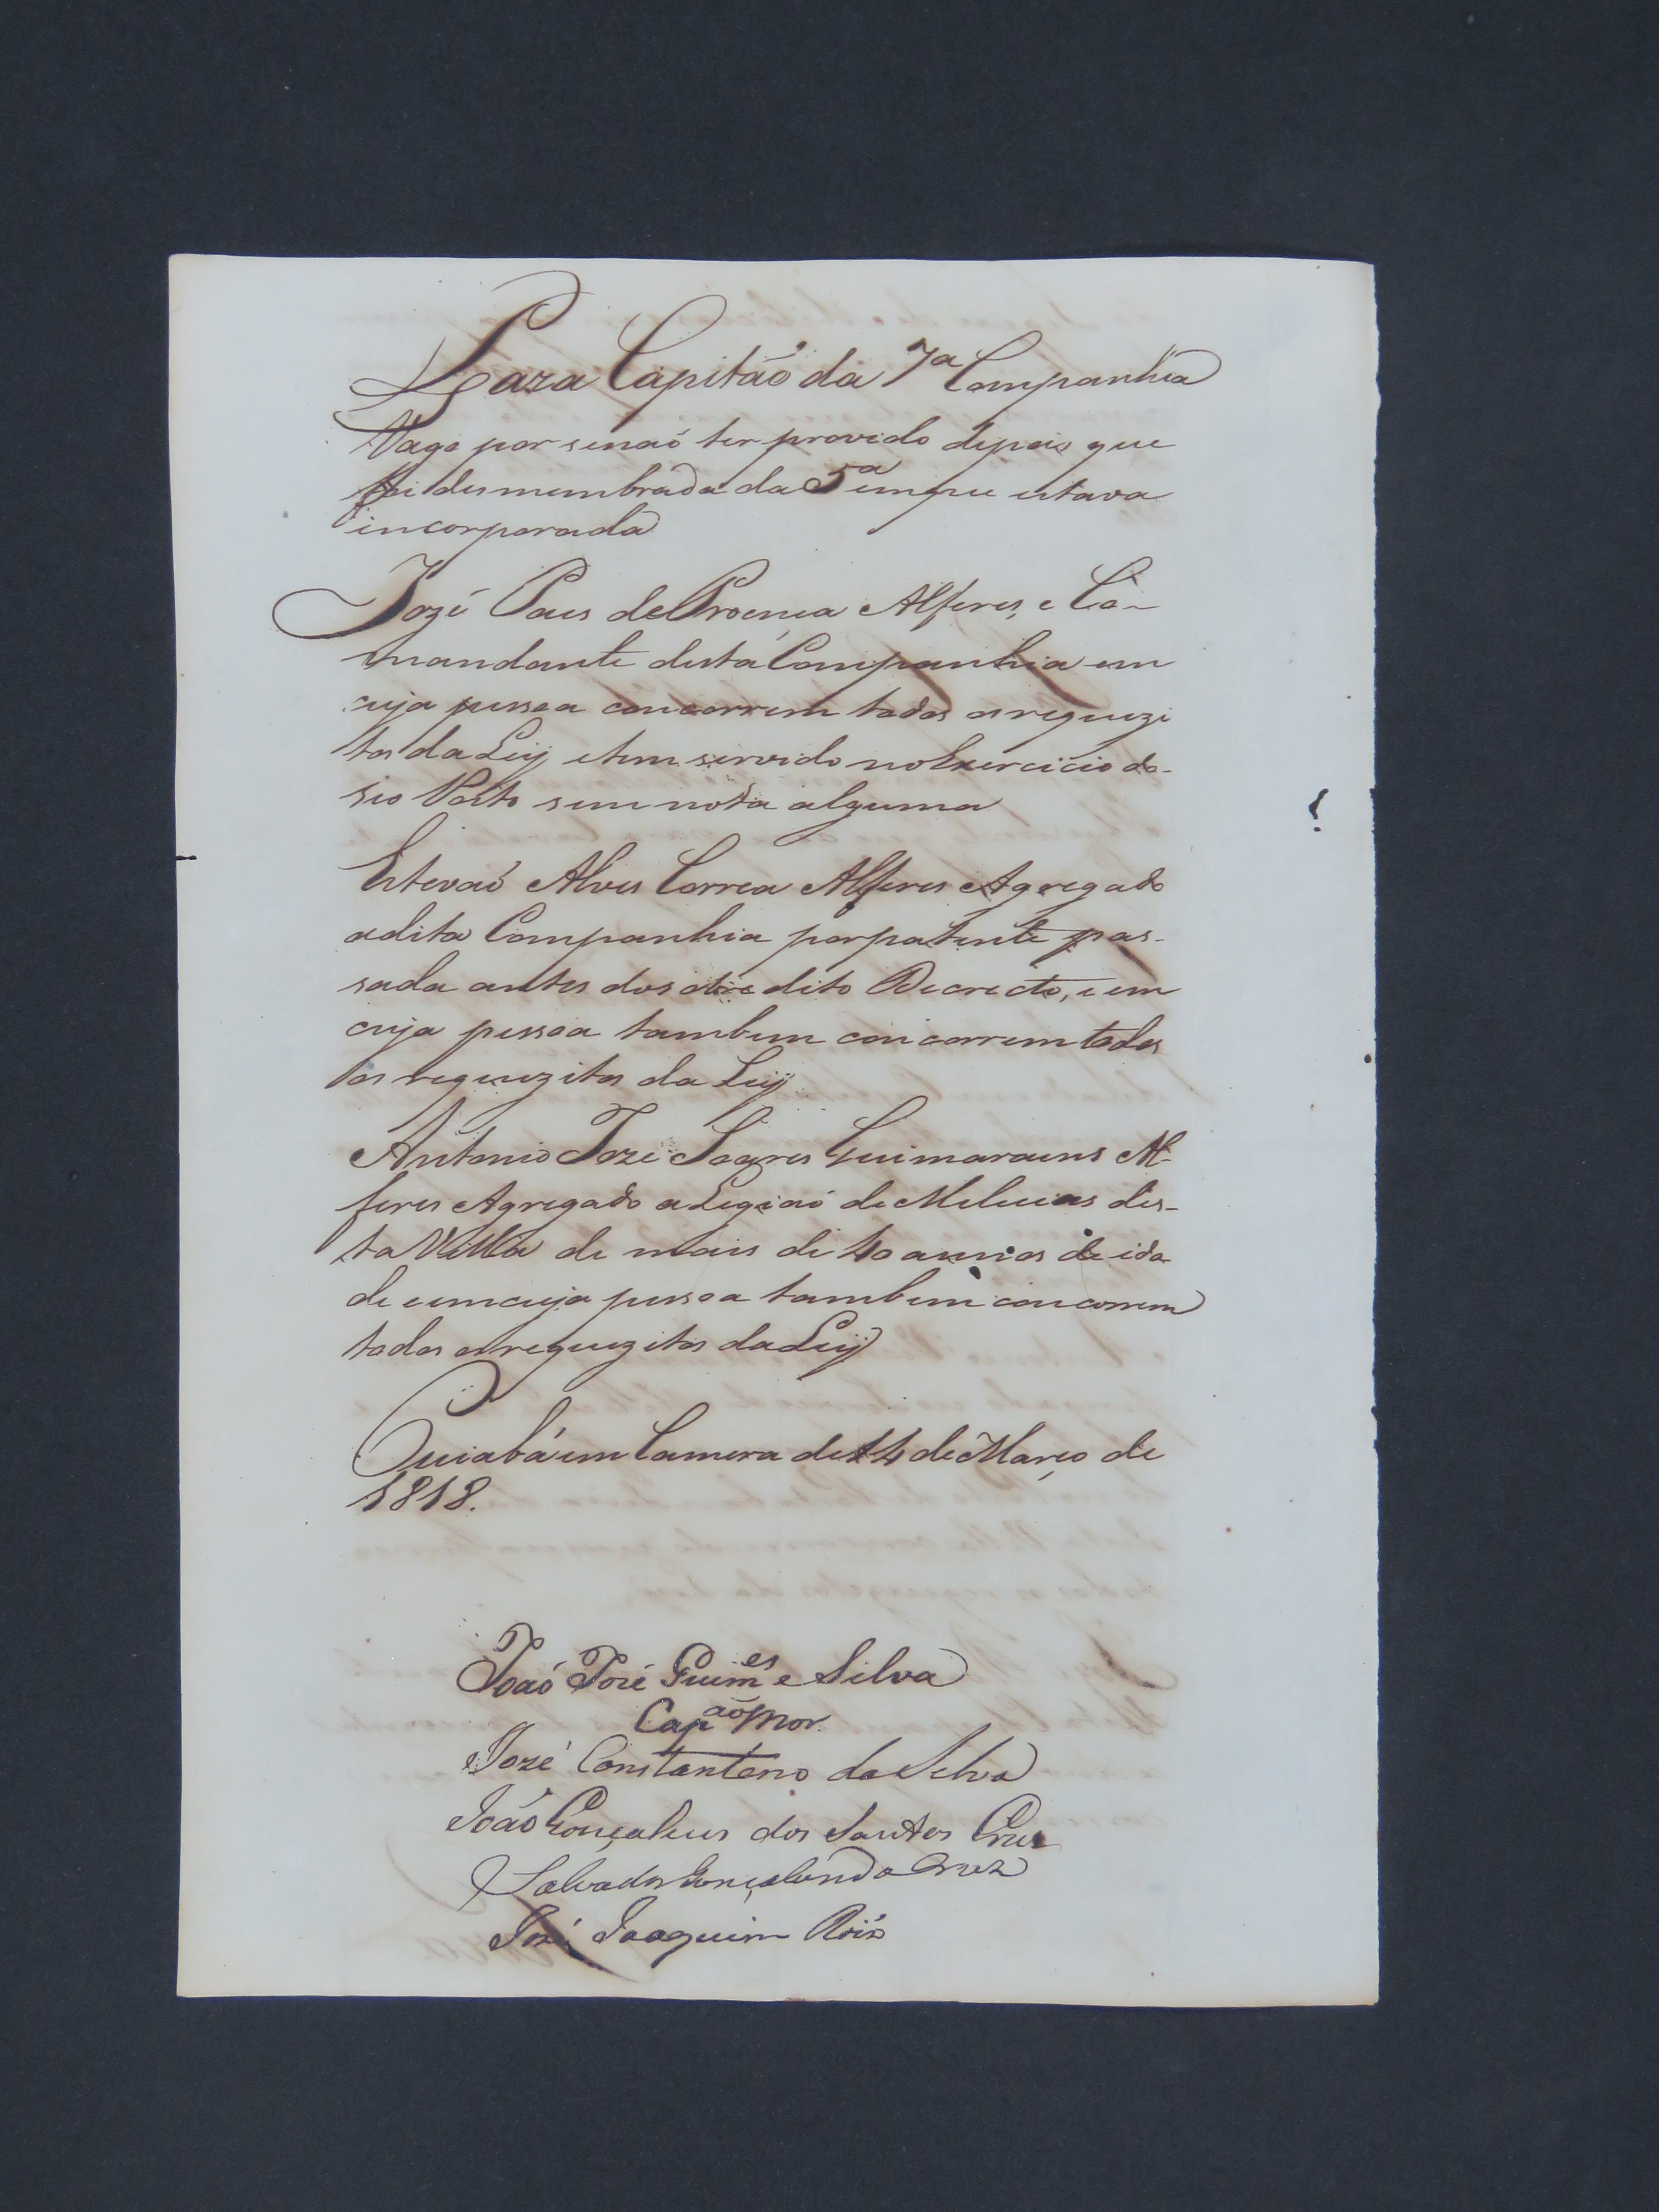 Para Capitaõ da 7ª Companhia
Vago por senaõ ter provido depois que
foi desmembrada da 5ª emque estava
incorporada
Jozé Paes de Proença Alferes, e Co-
mandante desta Companhia em
cuja pessoa concorrem todos os requezi
tos da Ley, etem servido no Exercicio do
seo Posto sem nota alguma
Estevaõ Alves Correa Alferes Agregado
adita Companhia por patente pas-
sada antes do sobredito Decreto, e em
cuja pessoa tambem concorrem todos
os requezitos da Ley
Antonio Joze Soares Guimaraens Al-
feres Agregado a Legiaõ de Melicias des-
ta Villa de mais de 40 annos de ida
de eemcuja pessoa tambem concorrem
todos os requezitos da Ley
Cuiabá em Camera de 14 de Março de
1818.
Joaõ Jozé Guim.es e Silva
Cap.ão Mor.
Jozé Constantino da Silva
João Gonçalves dos Santos Cruz
Salvador Gonçalves da Cruz
José Joaquim Roiz